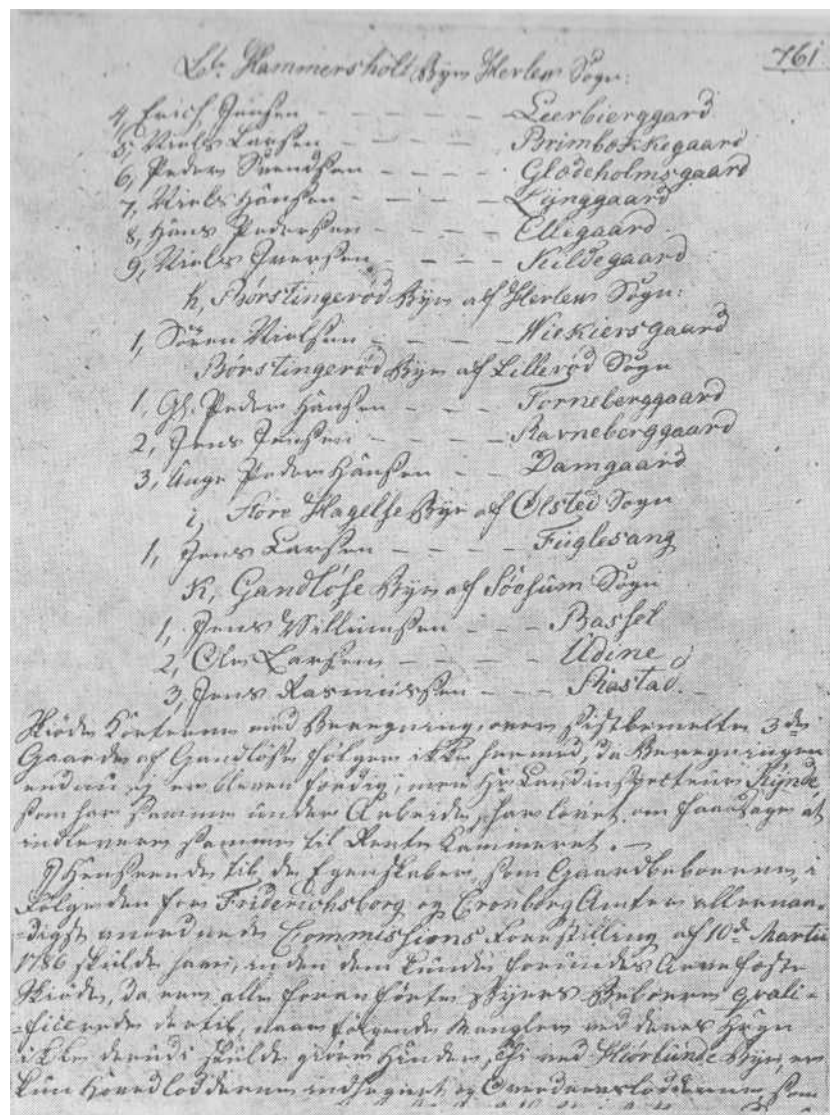 761
Lt. Hammersholt Byes Herlew Sogn:
4, Erich Jensen - - - - - Leerbierggaard
5, Niels Larsen - - - - - Brimbokkegaard
6, Peder Svendsen - - - - Glodeholmsgaard
7, Niels Hansen - - - - Lÿnggaard
8, Hans Pedersen - - - - Elligaard
9, Niels Iversen - - - - Kildegaard
h, Börstingeröd Bye af Herlew Sogn:
1, Sören Nielsen - - - - Wiekiersgaard
Börstingeröd Bye af Lilleröd Sogn
1, Gl. Peder Hansen - - - Torneberggaard
2, Jens Jensen - - - - Ravneberggaard
3, Unge Peder Hansen - - Damgaard
i, Store Hagelse Bye af Ölsted Sogn
1, Jens Larsen - - - - Fuglesang
K, Gandlöse Bye af Söosum Sogn
1, Jens Willumsen - - - Bassel
2, Ole Larsen - - - - Udine
3, Jens Rasmussen - - - Bastad.
Skiöde Korterne med Beregning over sistbemelte 3de
Gaarde af Gandlöse fölger ikke hermed, da Beregningen
endnu ej er bleven færdig, men Hr Landinspecteur Kÿnde,
som har samme under Arbeide, har lovet om faae Dage at
indlevere samme til Rente Kammeret. -
I Henseende til de Egenskaber, som Gaardbeboerne, i
Fölge den for Friderichsborg og Cronborg Amter allernaa-
digst anordnede Commissions Forestilling af 10de Martii
1786 skulde have, inden dem kunde forundes Arvefæste
Skiöde, da ere alle foranförte Byers Beboere qvali-
ficerede dertil, naar fölgende Mangler ved deres Hegn
ikke derudi skulde giöre Hinder, thi ved Hiörlunde Bye, er
kun Hovedlodderne indhegnet, og Overdrevslodderne, som